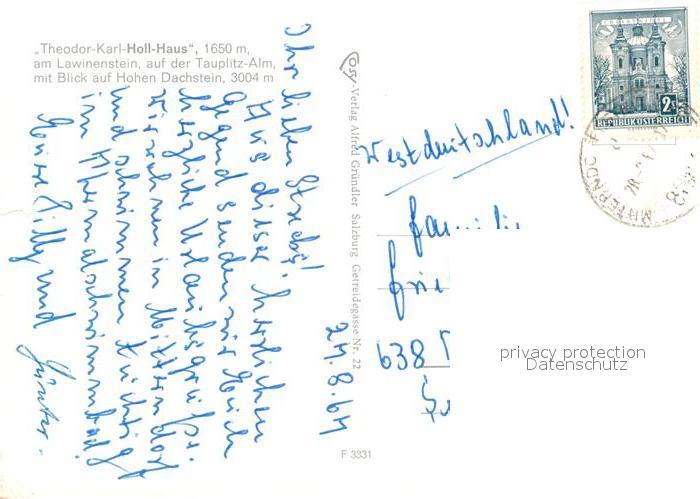 „Theodor-Karl-Holl-Haus“, 1650 m,
am Lawinenstein, auf der Tauplitz-Alm,
mit Blick auf Hohen Dachstein, 3004 m
24.8.64
Ihr lieben
Aus dieser herrlichen
Gegend senden wir Euch
herzliche Urlaubsgrüße.
Wir wohnen in Mitterndorf
und schwimmen tüchtig
im Thermalschwimmbad.
Eure Lilly und Günter.
Cosy-Verlag Alfred Gründler Salzburg Getreidegasse Nr. 22
F 3331
CHRISTKINDL
2S
REPUBLIK ÖSTERREICH
MITTERNDO
Westdeutschland!
638
privacy protection
Datenschutz